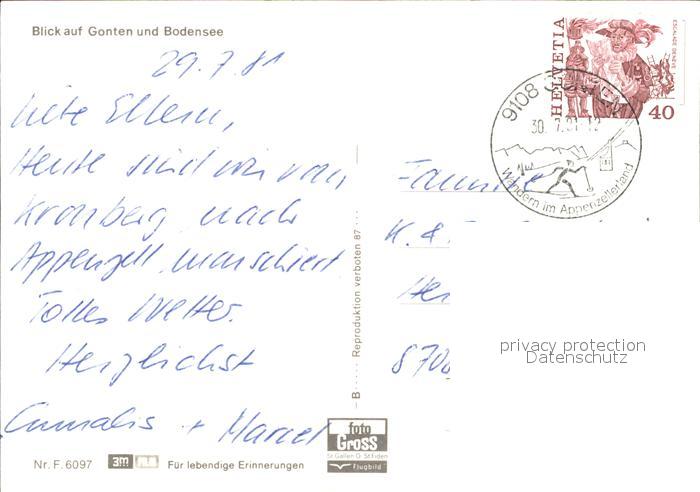 Blick auf Gonten und Bodensee
29.7.81
Liebe Eltern,
Heute sind wir von
Kronberg nach
Appenzell marschiert.
Tolles Wetter.
Herzlichst
+ Marcel
Nr. F. 6097
3m
Für lebendige Erinnerungen
foto
Gross
St. Gallen O. St. Fiden
Flugbild
B Reproduktion verboten 87
HELVETIA
ESCALADE GENÈVE
40
9108
30. 7.81-12
Wandern im Appenzellerland
Familie
K. &
8700
privacy protection
Datenschutz